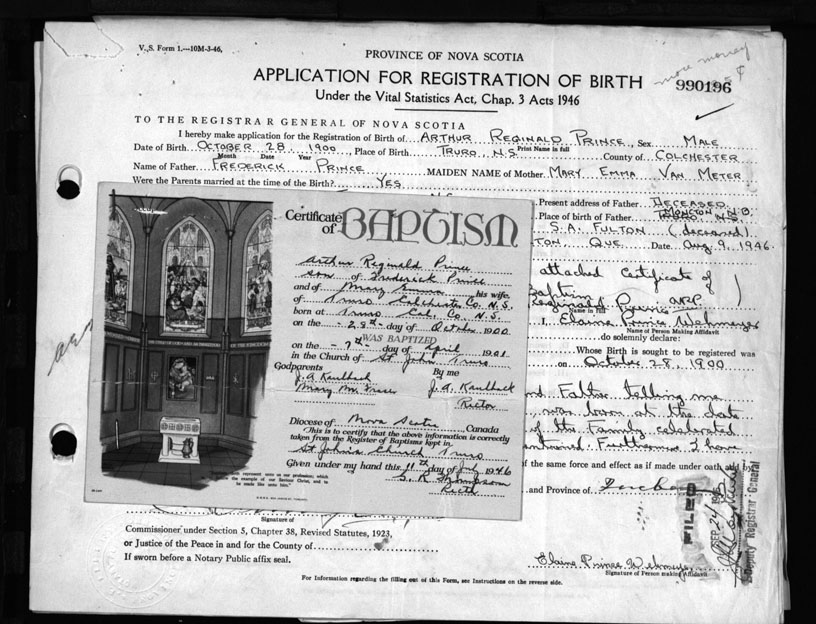 V.,S. Form 1.—10M-3-46.
more money
PROVINCE OF NOVA SCOTIA
APPLICATION FOR REGISTRATION OF BIRTH
990196
Under the Vital Statistics Act, Chap. 3 Acts 1946
TO THE REGISTRAR GENERAL OF NOVA SCOTIA
I hereby make application for the Registration of Birth of ARTHUR REGINALD PRINCE, Sex MALE
Print Name in full
Date of Birth OCTOBER 28, 1900, Place of Birth TRURO, N.S. County of COLCHESTER
Month Date Year
Name of Father FREDERICK PRINCE MAIDEN NAME of Mother MARY EMMA VAN METER
Were the Parents married at the time of the Birth? YES
Present address of Father DECEASED
Place of birth of Father
S.A. FULTON (deceased)
TON, QUE. Date Aug 9, 1946.
attached Certificate of
Baptism
Reginald Prince
Name in Full
I, Elaine Prince
Name of Person Making Affidavit
do solemnly declare:
Whose Birth is sought to be registered was
on October 28, 1900
nd Father telling me
was born at the date
of the family celebrated
I have
of the same force and effect as if made under oath and by
and Province of
Certificate of BAPTISM
Arthur Reginald Prince
son of Frederick Prince
and of Mary Emma his wife.
of Truro Colchester Co. N.S.
born at Truro Col. Co. N.S.
on the 28th day of October 1900
WAS BAPTIZED
on the 7th day of April 1901
in the Church of St John Truro
Godparents By me
J. A. Kaulback J. A. Kaulback
Mary Rector
Diocese of Nova Scotia Canada
This is to certify that the above information is correctly
taken from the Register of Baptisms kept in
St John's Church Truro
Given under my hand this 11th day of July 1946
FILED
SEP 24 1946
Deputy Registrar General
Signature of
Commissioner under Section 5, Chapter 38, Revised Statutes, 1923,
or Justice of the Peace in and for the County of
If sworn before a Notary Public affix seal.
Elaine Prince
Signature of Person making Affidavit
For Information regarding the filling out of this Form, see Instructions on the reverse side.